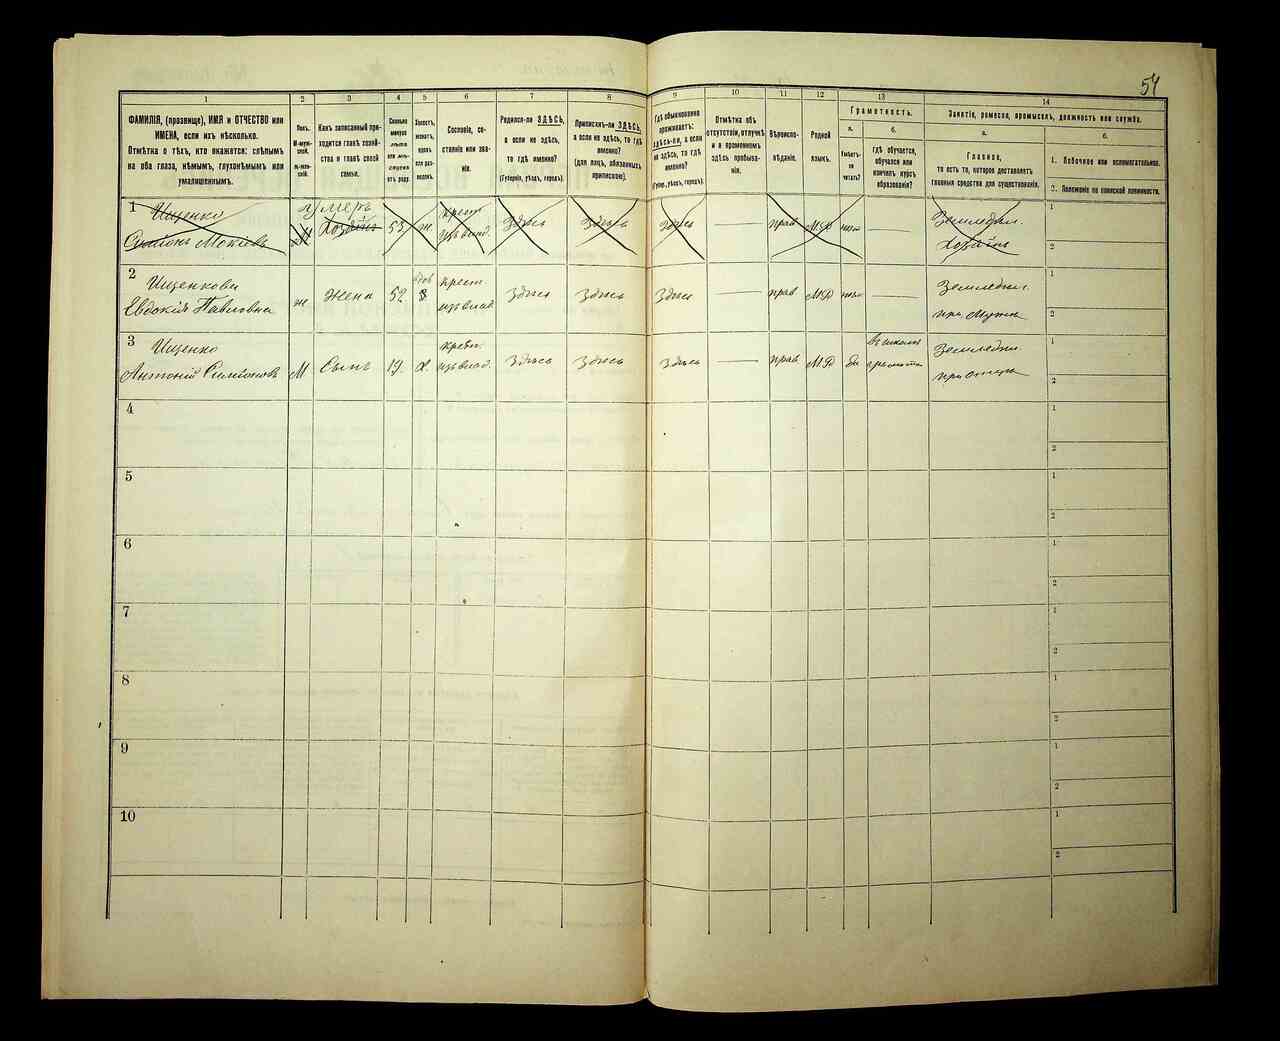 54
1 2 3 4 5 6 7 8 9 10 11 12 13 14
ФАМИЛІЯ, (прозвище), ИМЯ и ОТЧЕСТВО или
ИМЕНА, если ихъ нѣсколько.
Отмѣтка о тѣхъ, кто окажется: слѣпымъ
на оба глаза, нѣмымъ, глухонѣмымъ или
умалишеннымъ.
Полъ.
М-муж-
ской.
ж-жен-
скій.
Какъ записанный при-
ходится главѣ хозяй-
ства и главѣ своей
семьи.
Сколько
минуло
лѣтъ
или мѣ-
сяцевъ
отъ роду.
Холостъ,
женатъ,
вдовъ
или раз-
веденъ.
Сословіе, со-
стояніе или зва-
ніе.
Родился-ли ЗДѢСЬ,
а если не здѣсь,
то гдѣ именно?
(Губернія, уѣздъ, городъ).
Приписанъ-ли ЗДѢСЬ,
а если не здѣсь, то гдѣ
именно?
(для лицъ, обязанныхъ
припискою).
Гдѣ обыкновенно
проживаетъ:
здѣсь-ли, а если
не здѣсь, то гдѣ
именно?
(Губерн., уѣздъ, городъ).
Отмѣтка объ
отсутствіи, отлучкѣ
и о временномъ
здѣсь пребыва-
ніи.
Вѣроиспо-
вѣданіе.
Родной
языкъ.
Грамотность.
а.
Умѣетъ-
ли
читать?
б.
Гдѣ обучается,
обучался или
кончилъ курсъ
образованія?
Занятіе, ремесло, промыселъ, должность или служба.
а.
Главное,
то есть то, которое доставляетъ
главныя средства для существованія.
б.
1. Побочное или вспомогательное.
2. Положеніе по воинской повинности.
1 Ищенко умеръ крест. Земледѣл. 1
Симіонъ Мокіевъ М Хозяинъ 53 ж. изъ влад. Здѣсь Здѣсь Здѣсь — прав М.Р — Хозяинъ 2
2 Ищенкова вдов крест Земледѣл. 1
Евдокія Павловна ж Жена 52 изъ влад Здѣсь Здѣсь Здѣсь — прав М.Р — при Мужѣ 2
3 Ищенко крест. въ школѣ Земледѣл 1
Антоній Симіоновъ М Сынъ 19 х. изъ влад. Здѣсь Здѣсь Здѣсь — прав М.Р да грамоты при отцѣ 2
4 1
2
5 1
2
6 1
2
7 1
2
8 1
2
9 1
2
10 1
2